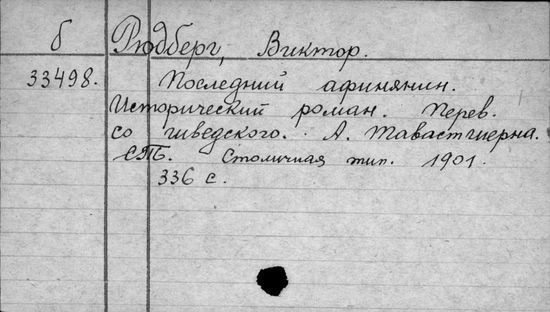 б Рюдберг, Виктор.
33498. Последний афинянин.
Исторический роман. Перев.
со шведского. А. Тавастшерна.
СПБ. Столичная тип. 1901.
336 с.